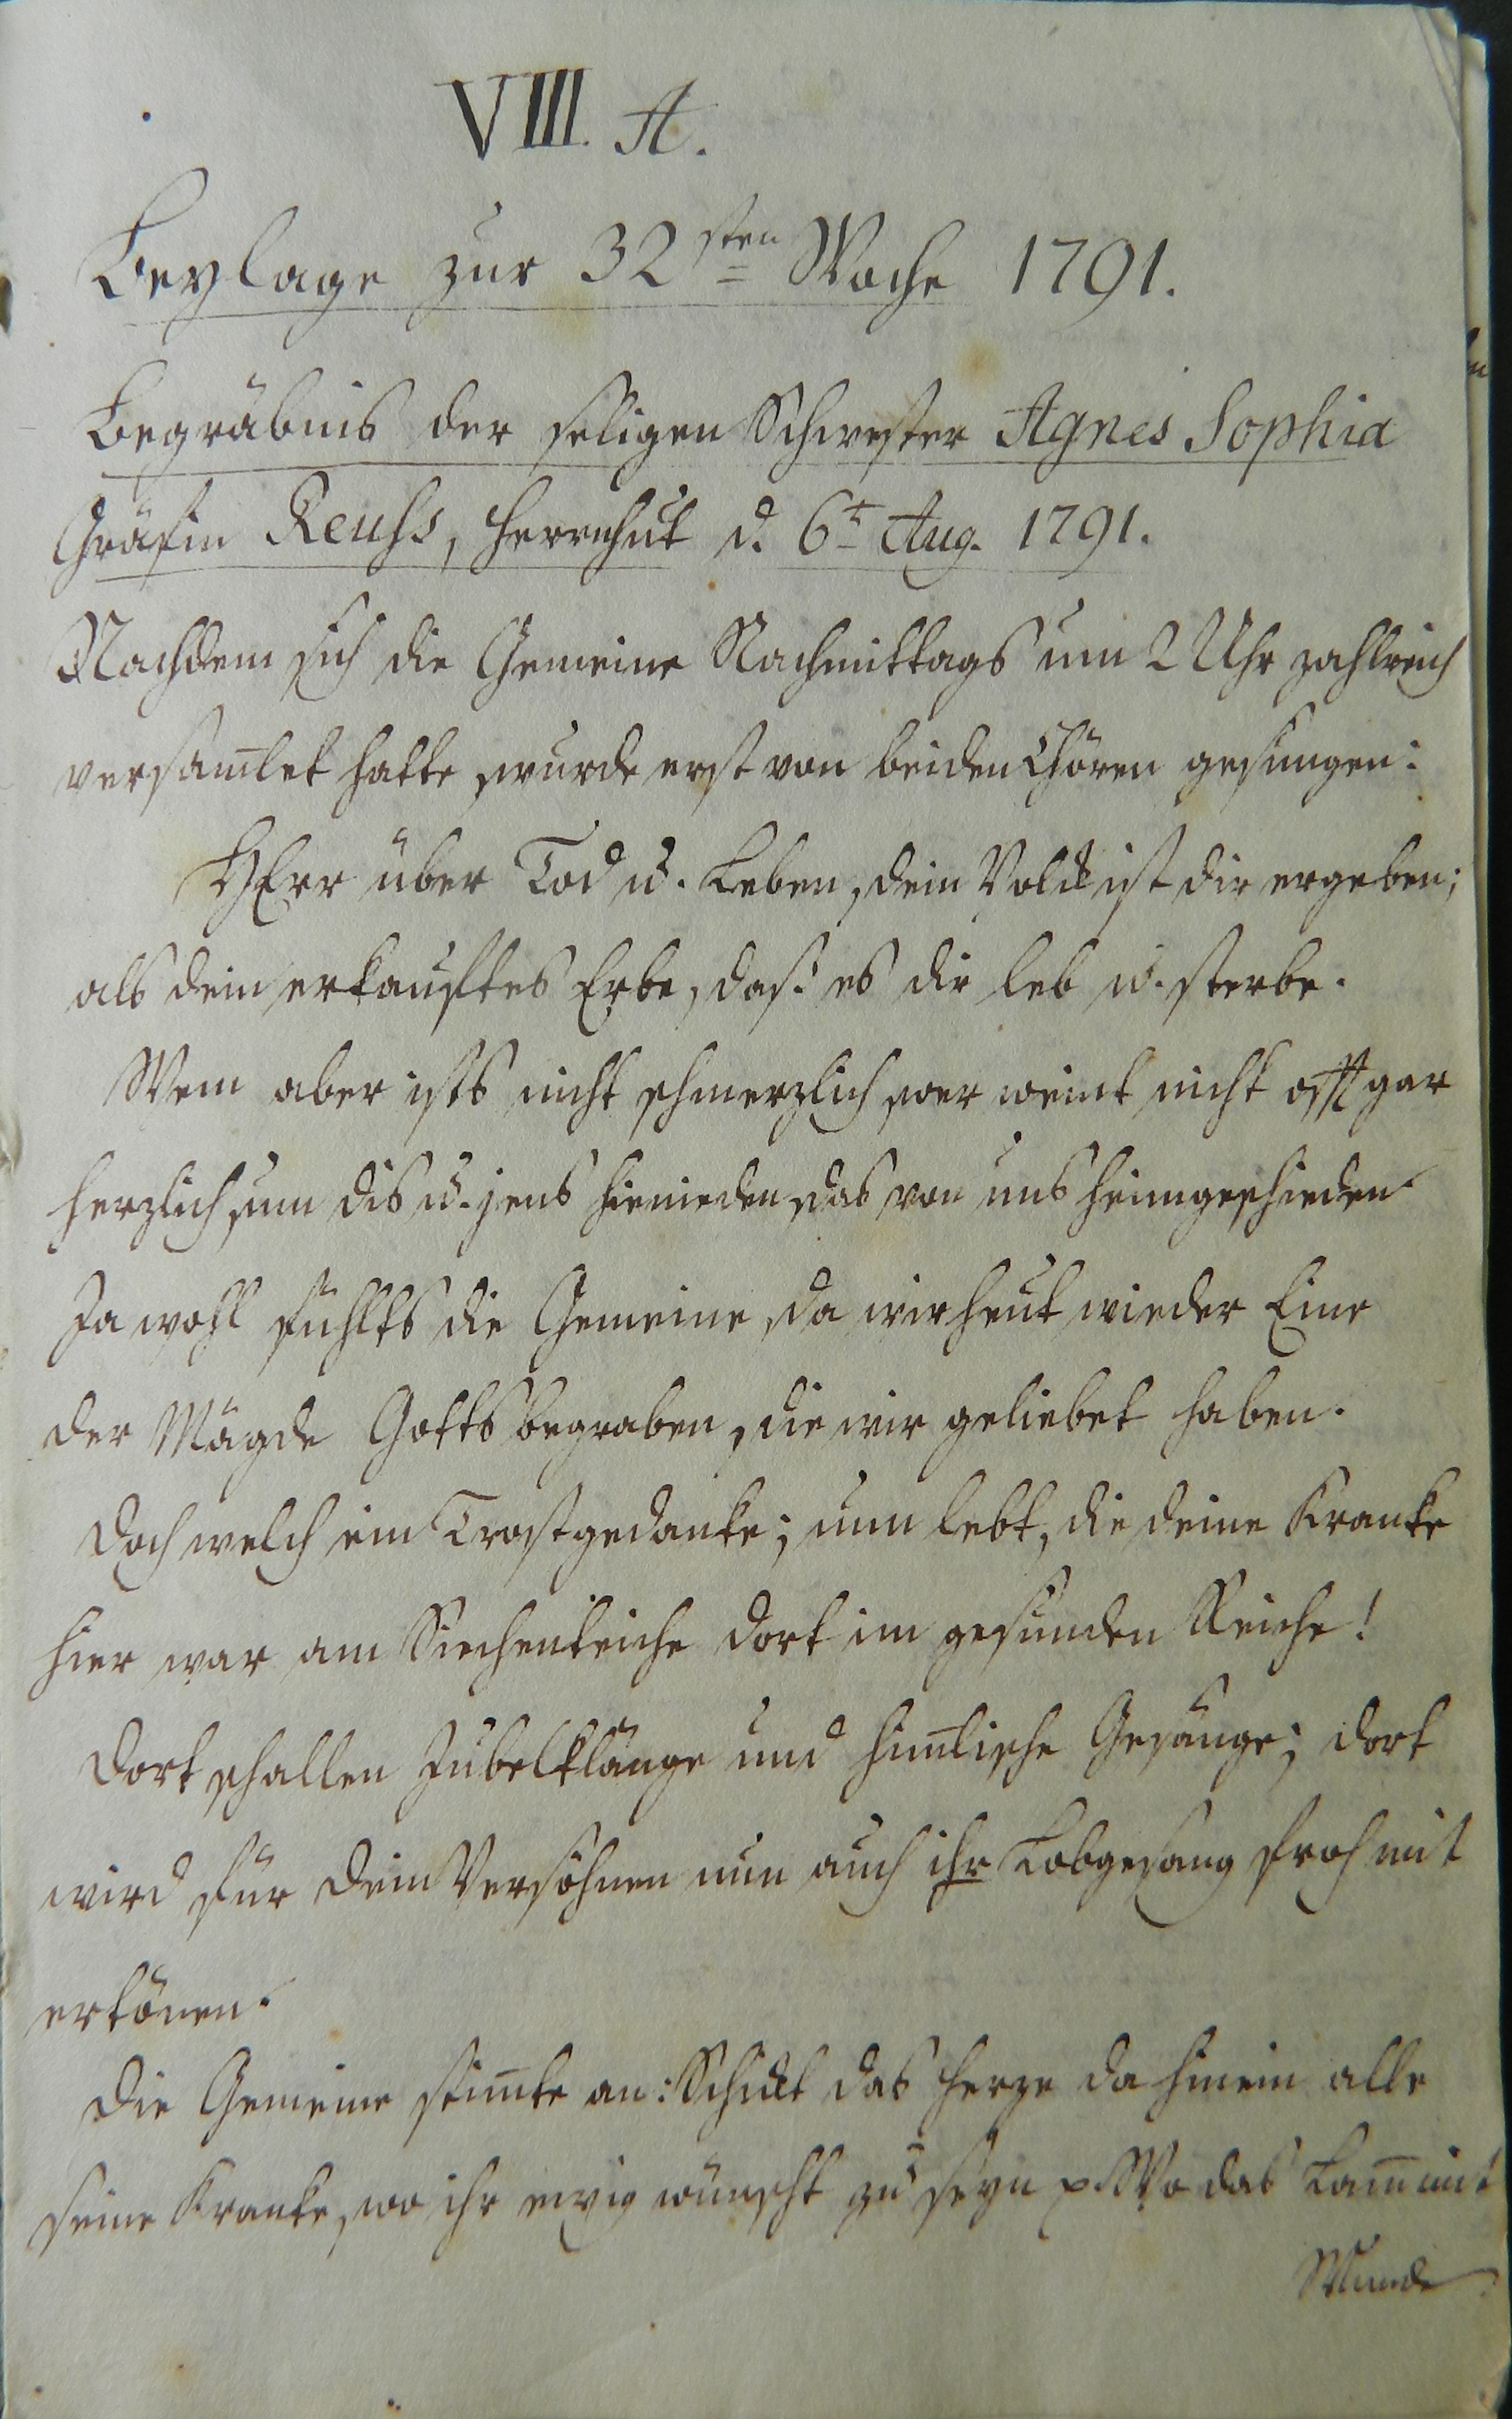 VIII. A.
Beylage zur 32sten Woche 1791.
Begräbnis der seligen Schwester Agnes Sophia
Gräfin Reuss, Herrnhut d. 6t Aug. 1791.
Nachdem sich die Gemeine Nachmittags um 2 Uhr zahlreich
versam̅let hatte, wurde erst von beiden Chören gesungen:
HErr über Tod u. Leben, dein Volck ist dir ergeben;
als dein erkauftes Erbe, dass es dir leb u. sterbe.
Wem aber ists nicht schmerzlich, wer weint nicht oft gar
herzlich, um dis u. jens hienieden, das von uns heimgeschieden
Ja wohl fühlts die Gemeine, da wir heut wieder Eine
der Mägde Gotts begraben, die wir geliebet haben.
Doch welch ein Trostgedanke; nun lebt, die deine Kranke
hier war am Siechenteiche dort im gesunden Reiche!
Dort schallen Jubelklänge und him̅lische Gesänge; dort
wird für dein Versöhnen nun auch ihr Lobgesang froh mit
ertönen.
Die Gemeine stim̅te an: Schickt das Herze da hinein alle
seine Kranke, wo ihr ewig wünscht zu seyn p. Wo das Lam̅ mit
Wund